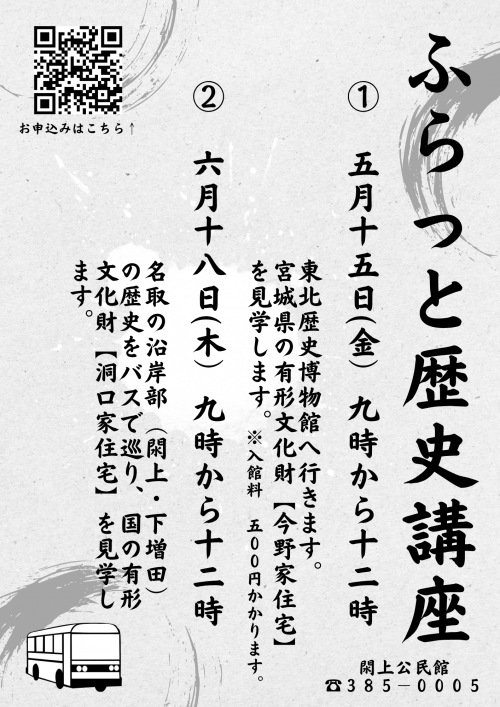 ふらっと歴史講座
① 五月十五日(金) 九時から十二時
東北歴史博物館へ行きます。
宮城県の有形文化財【今野家住宅】
を見学します。※入館料 五００円かかります。
② 六月十八日(木) 九時から十二時
名取の沿岸部(閖上・下増田)
の歴史をバスで巡り、国の有形
文化財【洞口家住宅】を見学し
ます。
お申込みはこちら↑
閖上公民館
☎385－0005